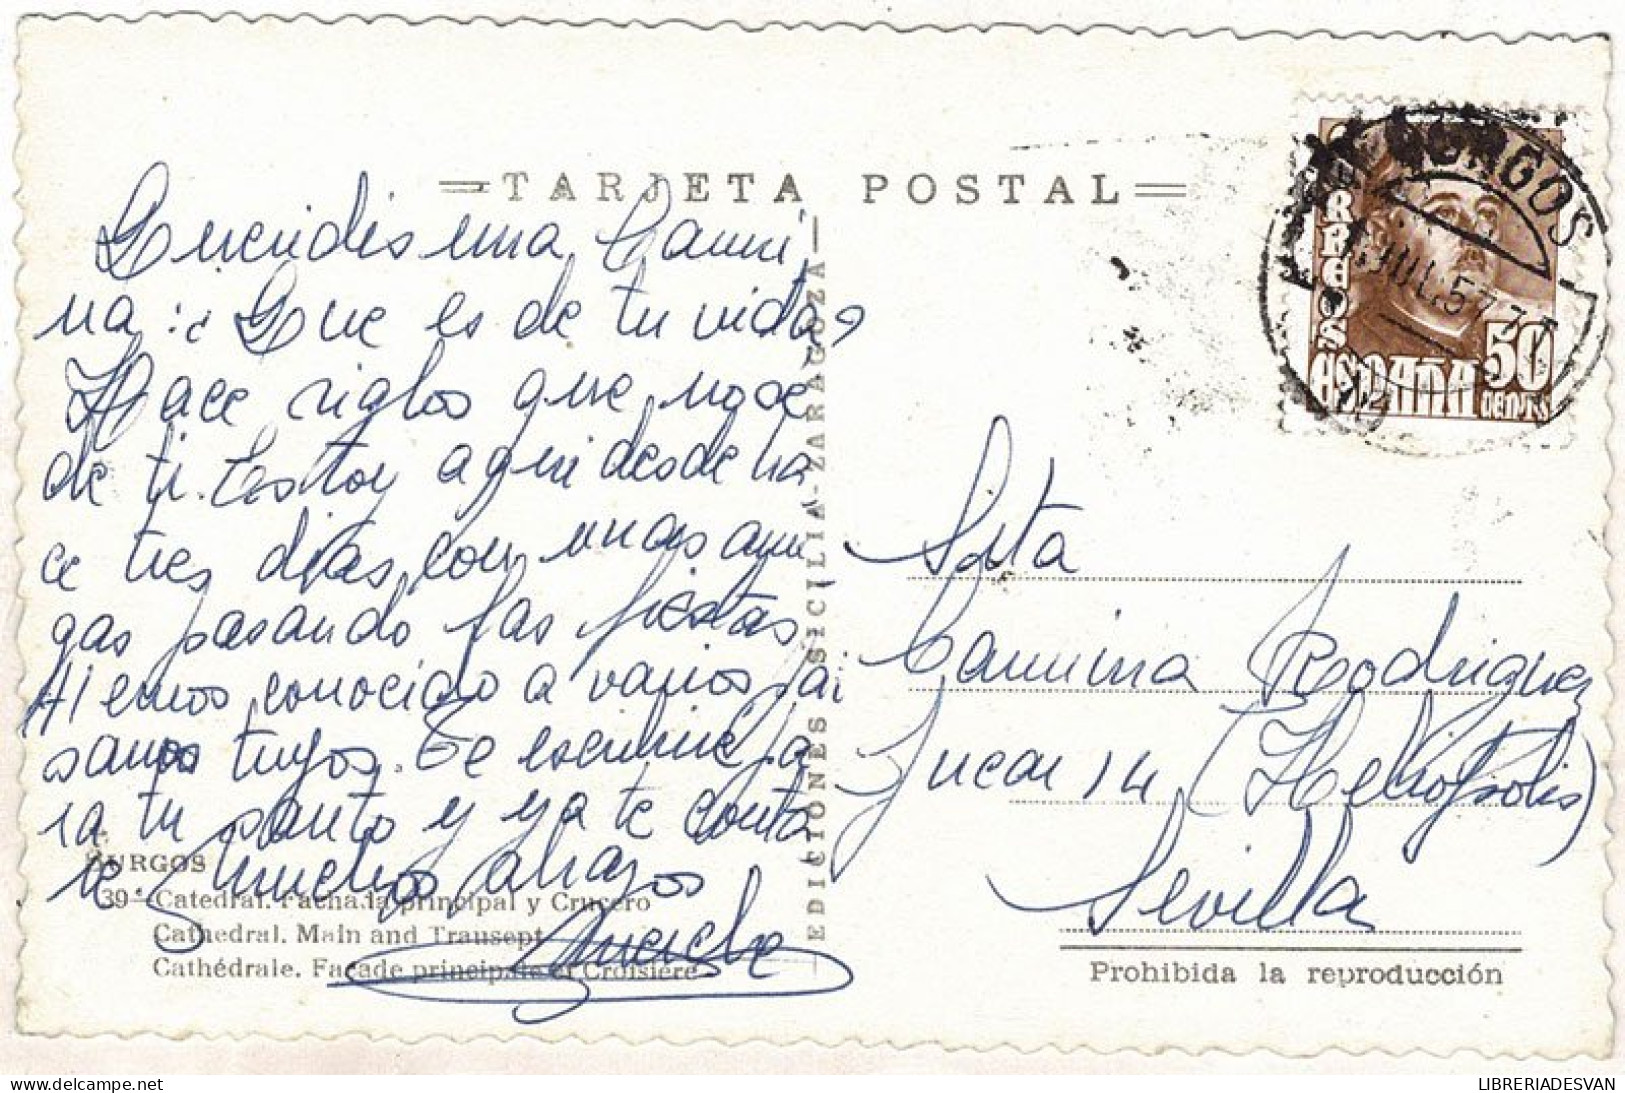 =TARJETA POSTAL=
Queridisima Cami
na: ¿Que es de tu vida?
Hace siglos que no se
de ti. Estoy aqui desde ha
ce tres dias con unas ami
gas pasando las fiestas
Hemos conocido a varios pai
sanos tuyos. Te escribiré pa
ra tu santo y ya te conta
re Muchos abrazos
BURGOS
39.ª-Catedral. Fachada principal y Crucero
Cathedral. Main and Transept
Cathédrale. Façade principale et Croisiére
EDICIONES SICILIA-ZARAGOZA
BURGOS
JUL.57
CORREOS
ESPAÑA
50
CENTS
Srta
Camina Rodriguez
Jucar 14 (Heliopolis)
Sevilla
Prohibida la reproducción
delcampe.net
LIBRERIADESVAN